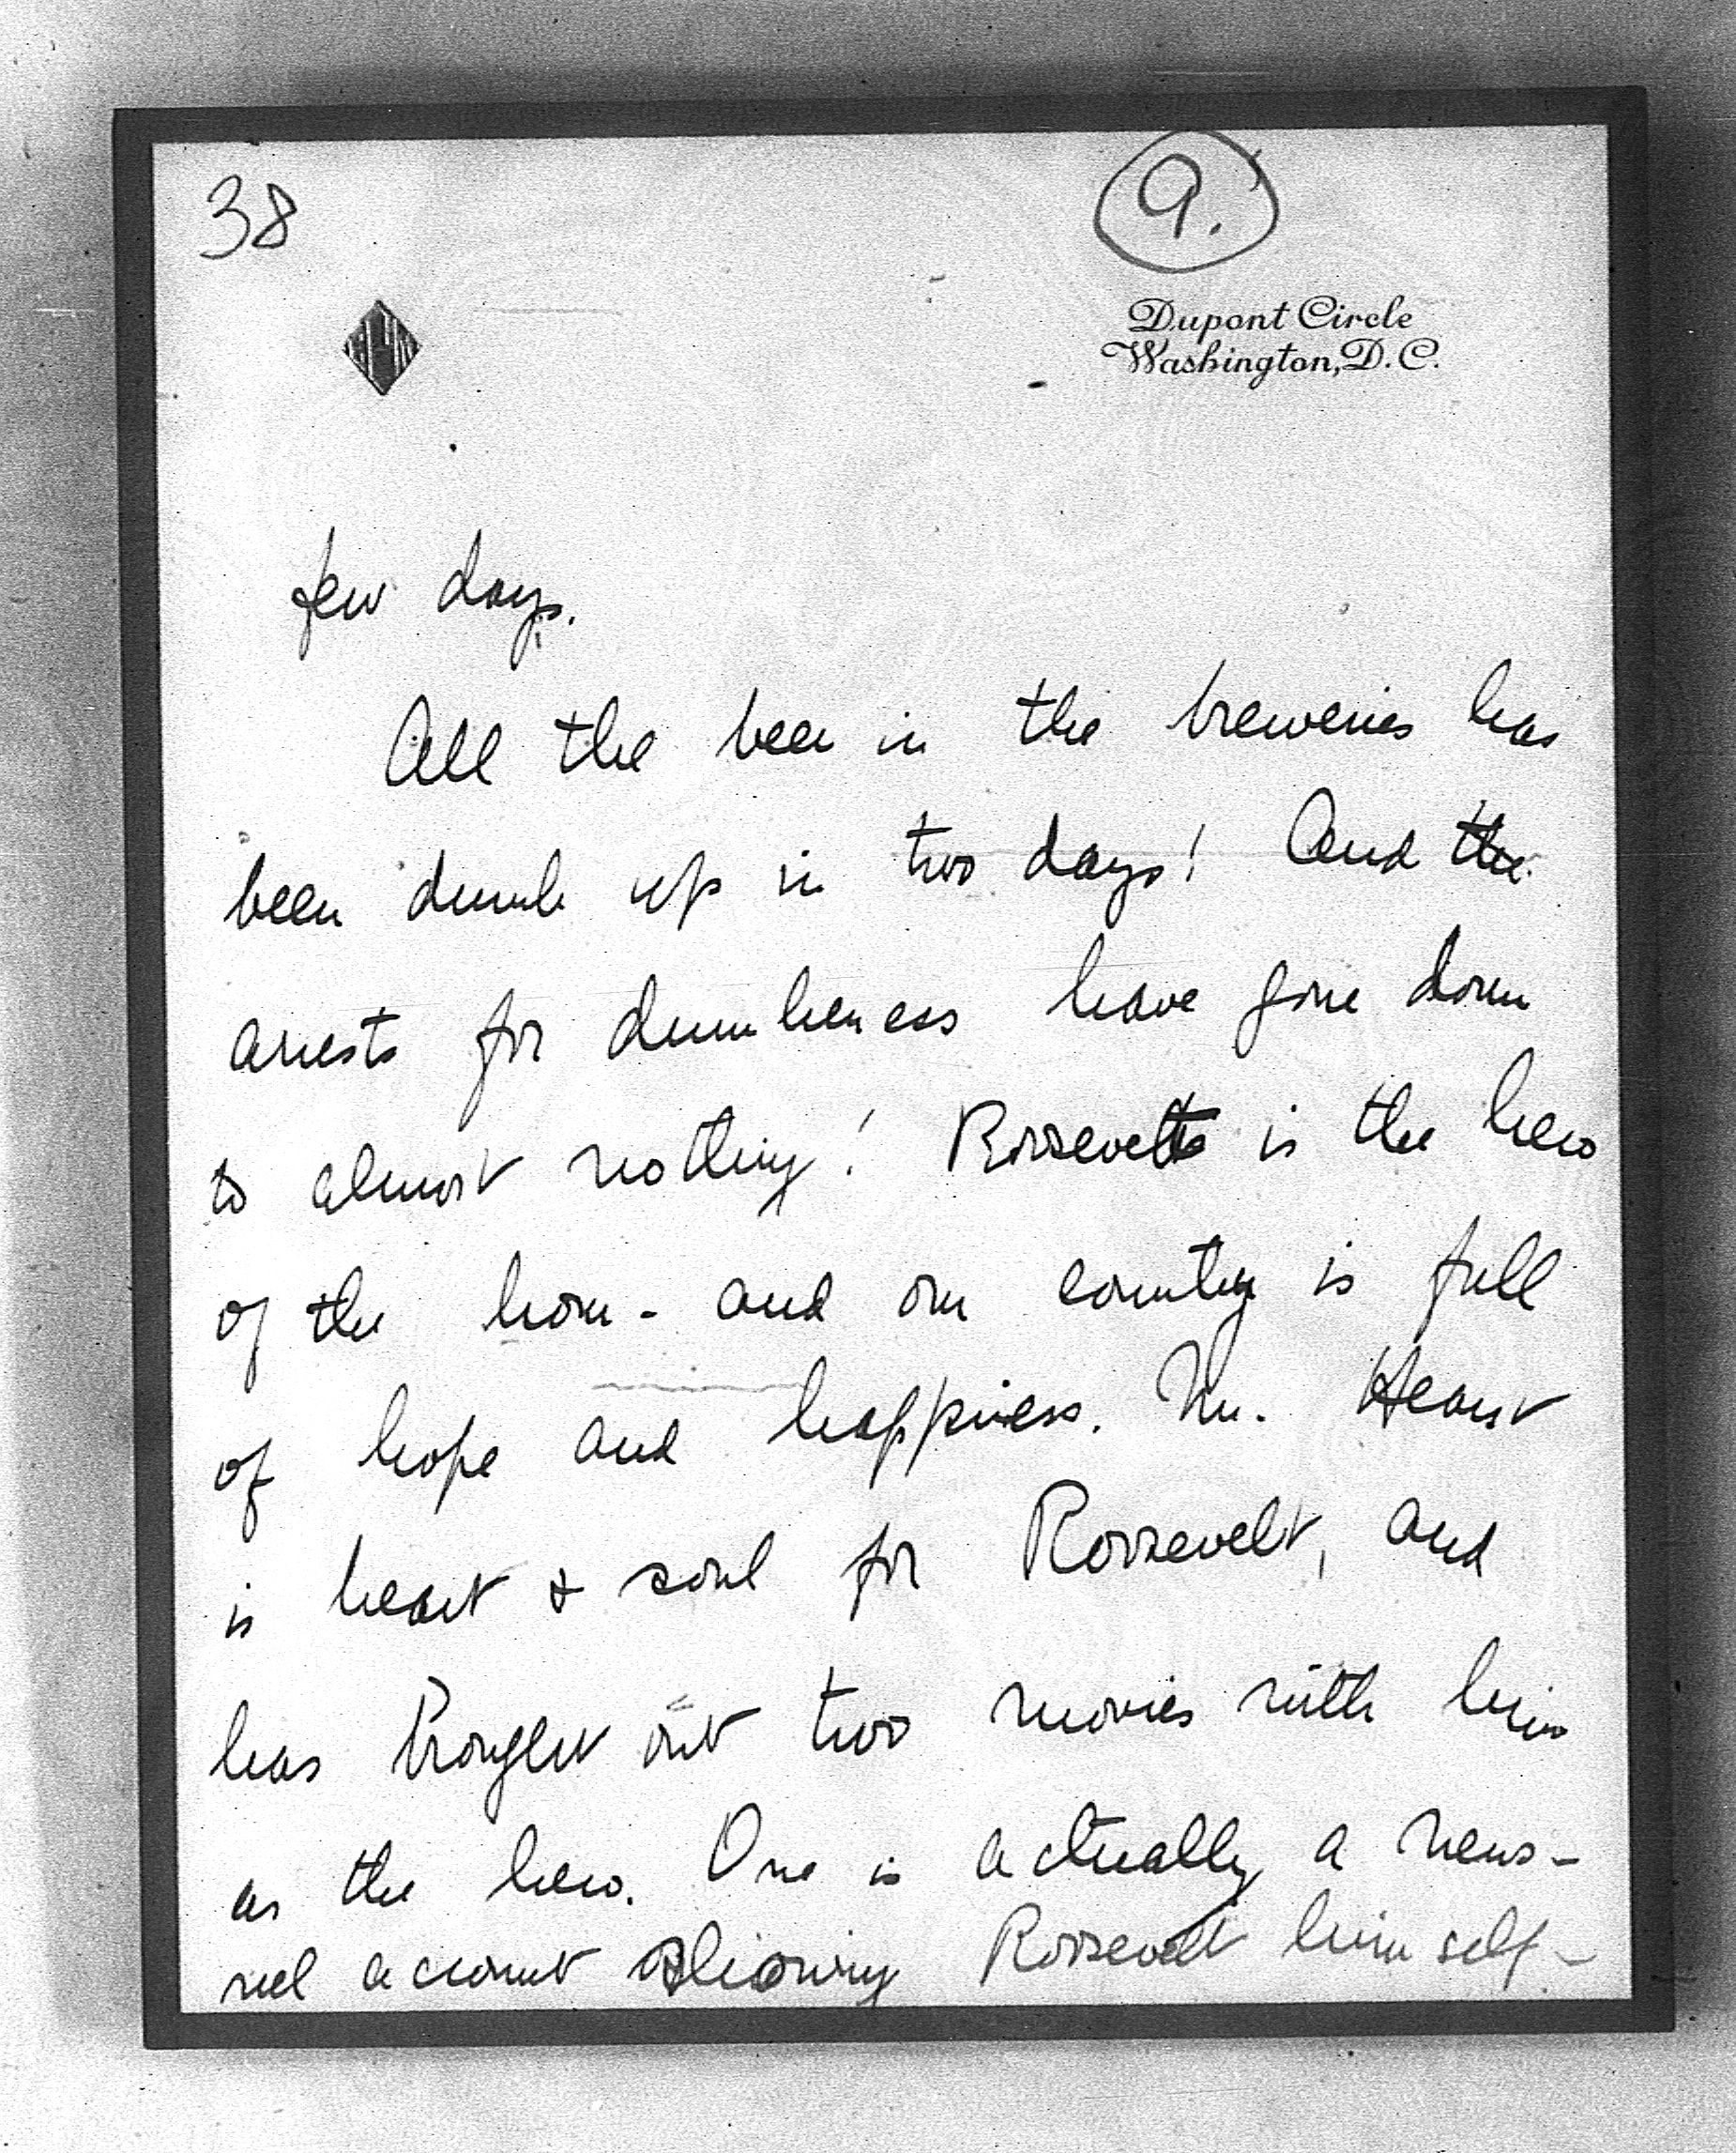 38
9.
Dupont Circle
Washington, D.C.
few days.
All the beer in the breweries has
been drunk up in two days! And the
arrests for drunkeness have gone down
to almost nothing! Roosevelt is the hero
of the hour - and our country is full
of hope and happiness. Mr. Hearst
is heart & soul for Roosevelt, and
has brought out two movies with him
as the hero. One is actually a news-
reel account showing Roosevelt himself -